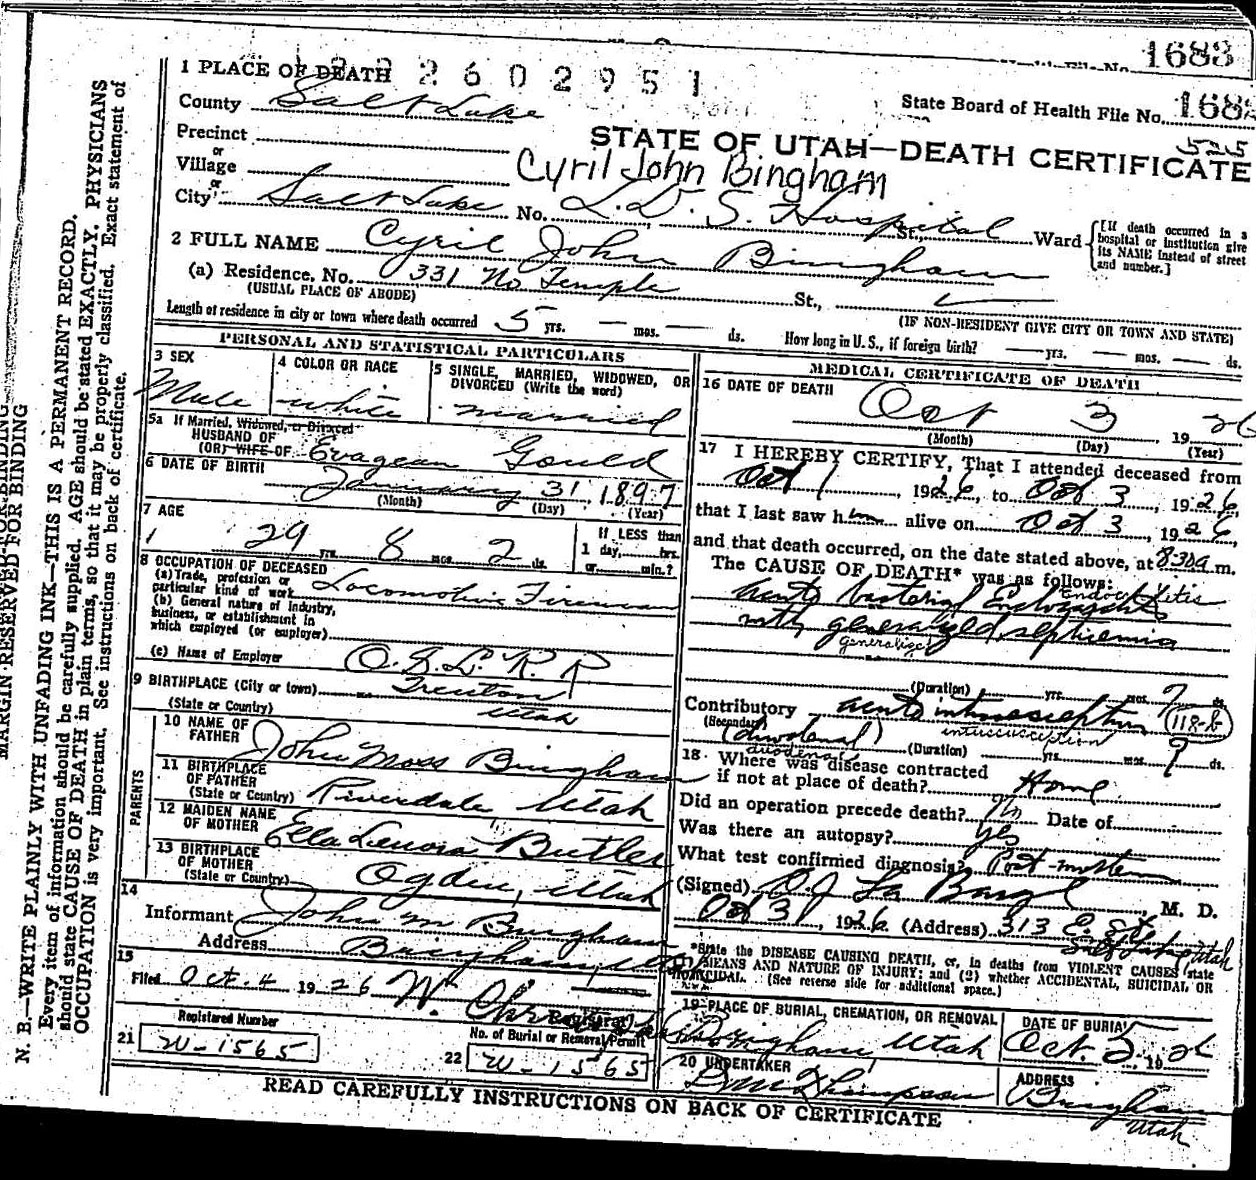 1683
1 PLACE OF DEATH
2602951
County Salt Lake
State Board of Health File No. 168
525
Precinct
or
Village
STATE OF UTAH—DEATH CERTIFICATE
Cyril John Bingham
or
City Salt Lake No. L. D. S. Hospital St., Ward
[If death occurred in a hospital or institution give its NAME instead of street and number.]
2 FULL NAME Cyril John Bingham
(a) Residence, No. 331 No Temple St.,
(USUAL PLACE OF ABODE)
(IF NON-RESIDENT GIVE CITY OR TOWN AND STATE)
Length of residence in city or town where death occurred 5 yrs. — mos. — ds. How long in U. S., if foreign birth? — yrs. — mos. — ds.
PERSONAL AND STATISTICAL PARTICULARS
3 SEX
Male
4 COLOR OR RACE
white
5 SINGLE, MARRIED, WIDOWED, OR DIVORCED (Write the word)
married
5a If Married, Widowed, or Divorced
HUSBAND OF
(OR) WIFE OF Evagean Gould
6 DATE OF BIRTH
January 31 1897
(Month) (Day) (Year)
7 AGE
29 yrs. 8 mos. 2 ds.
If LESS than
1 day, hrs.
or min.?
8 OCCUPATION OF DECEASED
(a) Trade, profession or
particular kind of work Locomotive Fireman
(b) General nature of industry,
business, or establishment in
which employed (or employer)
(c) Name of Employer O. S. L. R R
9 BIRTHPLACE (City or town) Trenton
(State or Country) Utah
PARENTS
10 NAME OF
FATHER John Moss Bingham
11 BIRTHPLACE
OF FATHER
(State or Country) Riverdale, Utah
12 MAIDEN NAME
OF MOTHER Ella Lenora Butler
13 BIRTHPLACE
OF MOTHER
(State or Country) Ogden, Utah
14
Informant John M Bingham
Address Bingham, Utah
15
Filed Oct. 4 1926
Registrar
Registered Number
21 W-1565
No. of Burial or Removal Permit
22 W-1565
MEDICAL CERTIFICATE OF DEATH
16 DATE OF DEATH
Oct 3 1926
(Month) (Day) (Year)
17 I HEREBY CERTIFY, That I attended deceased from
Oct 1, 1926, to Oct 3, 1926,
that I last saw him alive on Oct 3, 1926,
and that death occurred, on the date stated above, at 8:30a m.
The CAUSE OF DEATH* was as follows:
Endocarditis
acute bacterial Endocarditis
with generalized septicemia
generalized
(Duration) yrs. mos. 7 ds.
Contributory acute intussusception
(Secondary) (duodenal)
intussusception
118-b
duodenal
(Duration) yrs. mos. 9 ds.
18 Where was disease contracted
if not at place of death? Home
Did an operation precede death? No Date of
Was there an autopsy? Yes
What test confirmed diagnosis? Post-mortem
(Signed) O J La Barge M. D.
Oct 3, 1926 (Address) 313 E.
Salt Lake, Utah
*State the DISEASE CAUSING DEATH, or, in deaths from VIOLENT CAUSES state
MEANS AND NATURE OF INJURY; and (2) whether ACCIDENTAL, SUICIDAL OR
HOMICIDAL. (See reverse side for additional space.)
19 PLACE OF BURIAL, CREMATION, OR REMOVAL
Bingham, Utah
DATE OF BURIAL
Oct. 5 1926
20 UNDERTAKER
Thompson
ADDRESS
Bingham
Utah
READ CAREFULLY INSTRUCTIONS ON BACK OF CERTIFICATE
MARGIN RESERVED FOR BINDING
N. B.—WRITE PLAINLY WITH UNFADING INK—THIS IS A PERMANENT RECORD.
Every item of information should be carefully supplied. AGE should be stated EXACTLY. PHYSICIANS
should state CAUSE OF DEATH in plain terms, so that it may be properly classified. Exact statement of
OCCUPATION is very important. See instructions on back of certificate.